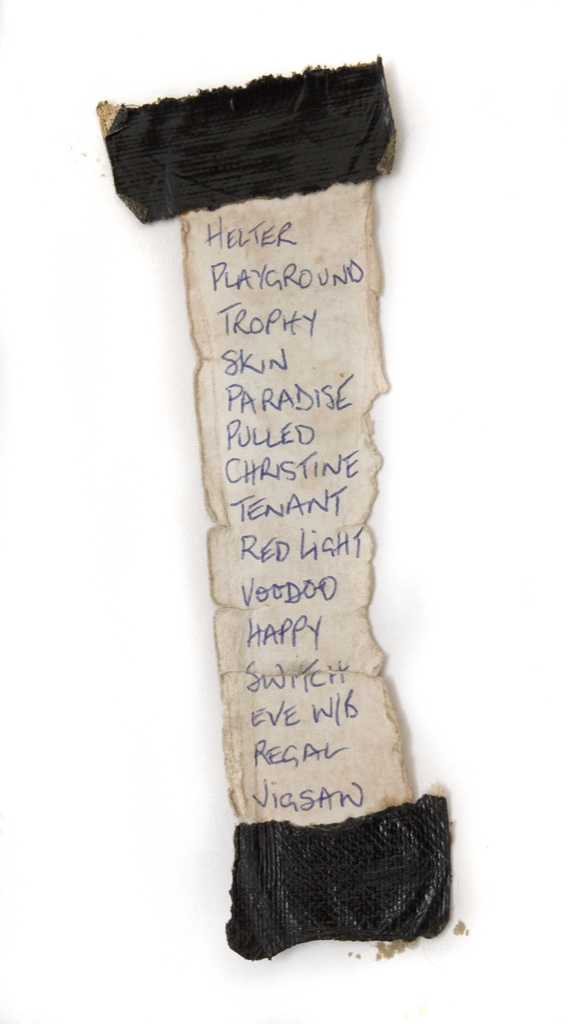 HELTER
PLAYGROUND
TROPHY
SKIN
PARADISE
PULLED
CHRISTINE
TENANT
RED LIGHT
VOODOO
HAPPY
SWITCH
EVE W/B
REGAL
JIGSAW